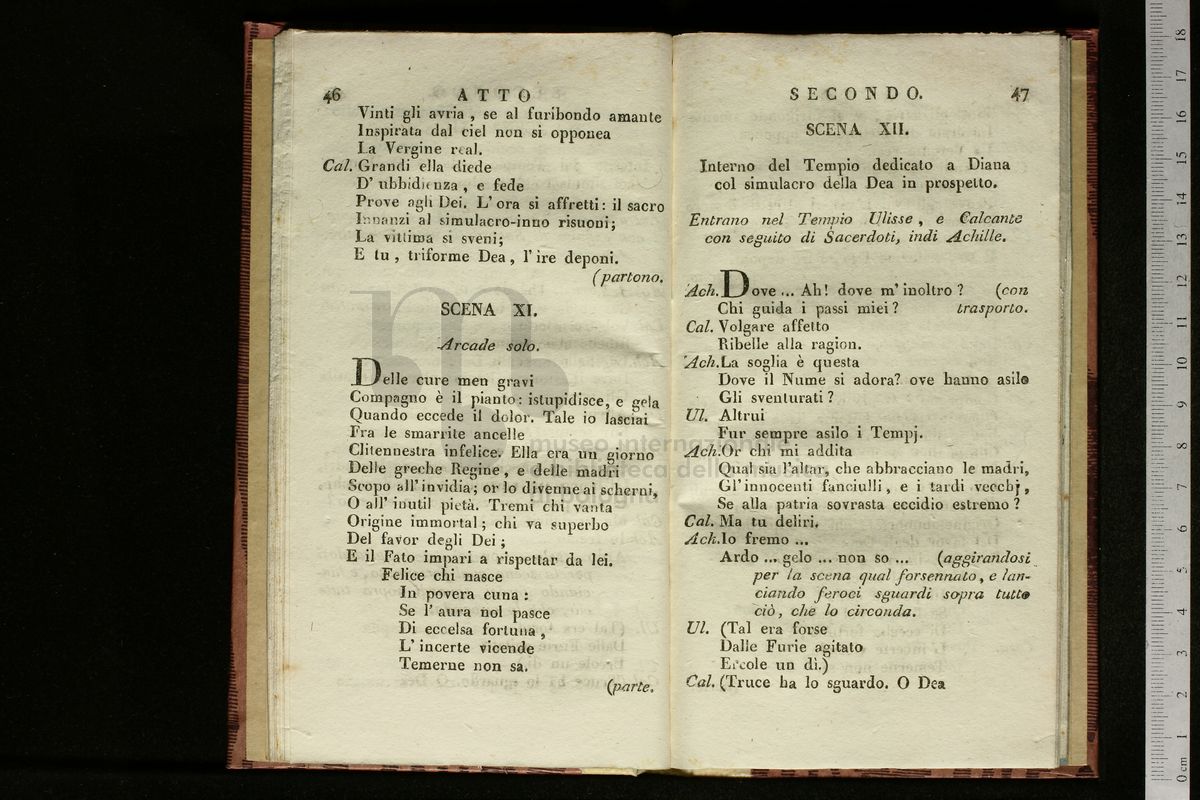 46 ATTO
Vinti gli avria , se al furibondo amante
Inspirata dal ciel non si opponea
La Vergine real.
Cal. Grandi ella diede
D' ubbidienza , e fede
Prove agli Dei. L' ora si affretti: il sacro
Innanzi al simulacro-inno risuoni;
La vittima si sveni;
E tu , triforme Dea , l' ire deponi.
(partono.
SCENA XI.
Arcade solo.
Delle cure men gravi
Compagno è il pianto: istupidisce, e gela
Quando eccede il dolor. Tale io lasciai
Fra le smarrite ancelle
Clitennestra infelice. Ella era un giorno
Delle greche Regine, e delle madri
Scopo all' invidia; or lo divenne ai scherni,
O all' inutil pietà. Tremi chi vanta
Origine immortal; chi va superbo
Del favor degli Dei;
E il Fato impari a rispettar da lei.
Felice chi nasce
In povera cuna :
Se l' aura nol pasce
Di eccelsa fortuna ,
L' incerte vicende
Temerne non sa.
(parte.
SECONDO. 47
SCENA XII.
Interno del Tempio dedicato a Diana
col simulacro della Dea in prospetto.
Entrano nel Tempio Ulisse , e Calcante
con seguito di Sacerdoti, indi Achille.
Ach. Dove ... Ah! dove m' inoltro ? (con
Chi guida i passi miei ? trasporto.
Cal. Volgare affetto
Ribelle alla ragion.
Ach. La soglia è questa
Dove il Nume si adora? ove hanno asilo
Gli sventurati ?
Ul. Altrui
Fur sempre asilo i Tempj.
Ach. Or chi mi addita
Qual sia l'altar, che abbracciano le madri,
Gl' innocenti fanciulli , e i tardi vecchj ,
Se alla patria sovrasta eccidio estremo ?
Cal. Ma tu deliri.
Ach. Io fremo ...
Ardo ... gelo ... non so ... (aggirandosi
per la scena qual forsennato, e lan-
ciando feroci sguardi sopra tutto
ciò, che lo circonda.
Ul. (Tal era forse
Dalle Furie agitato
Ercole un dì.)
Cal. (Truce ha lo sguardo. O Dea
museo internazionale
e biblioteca della musica
di bologna
0 cm 1 2 3 4 5 6 7 8 9 10 11 12 13 14 15 16 17 18